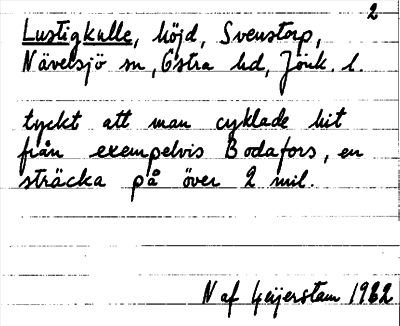 2
Lustigkulle, höjd, Svenstorp,
Nävelsjö sn, Östra hd, Jönk. l.
tyckt att man cyklade hit
från exempelvis Bodafors, en
sträcka på över 2 mil.
N af Geijerstam 1982